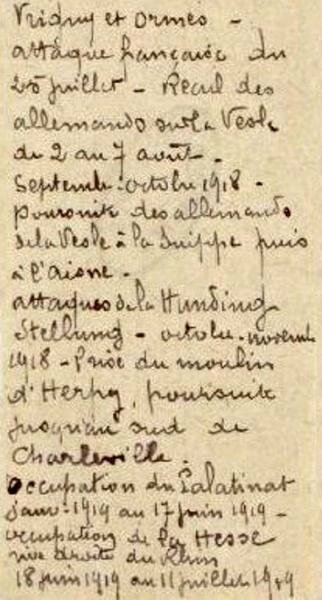 Vrigny et Ormes -
attaque française du
25 juillet - Recul des
allemands sur la Vesle
du 2 au 7 août -
Septembre-octobre 1918 -
poursuite des allemands
de la Vesle à la Suippe puis
à l'Aisne -
attaques de la Hunding
Stellung - octobre-novembre
1918 - Prise du moulin
d'Herpy, poursuite
jusqu'au sud de
Charleville.
Occupation du Palatinat
janv-1919 au 17 juin 1919 -
occupation de la Hesse
rive droite du Rhin
18 juin 1919 au 11 juillet 1919